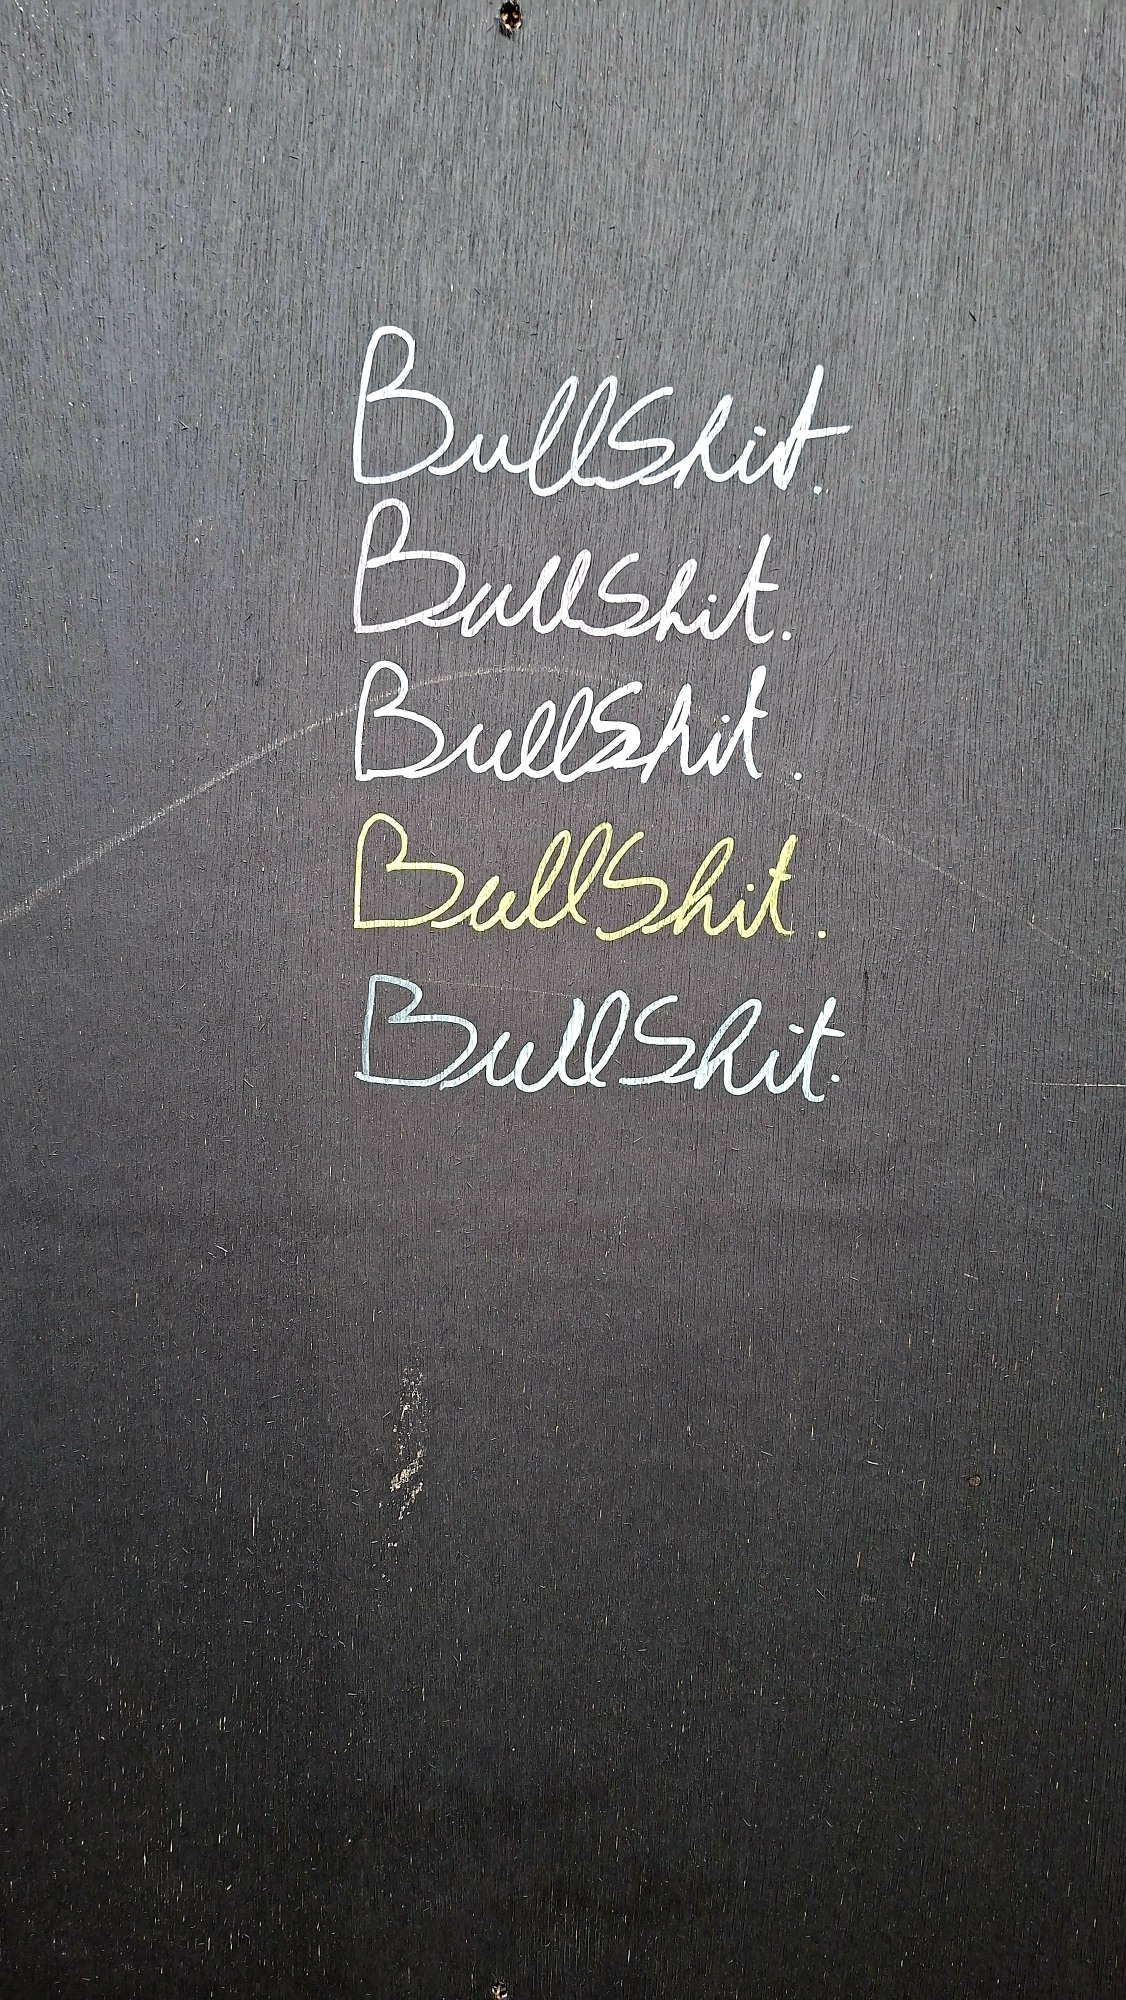 BullShit.
BullShit.
BullShit.
BullShit.
BullShit.